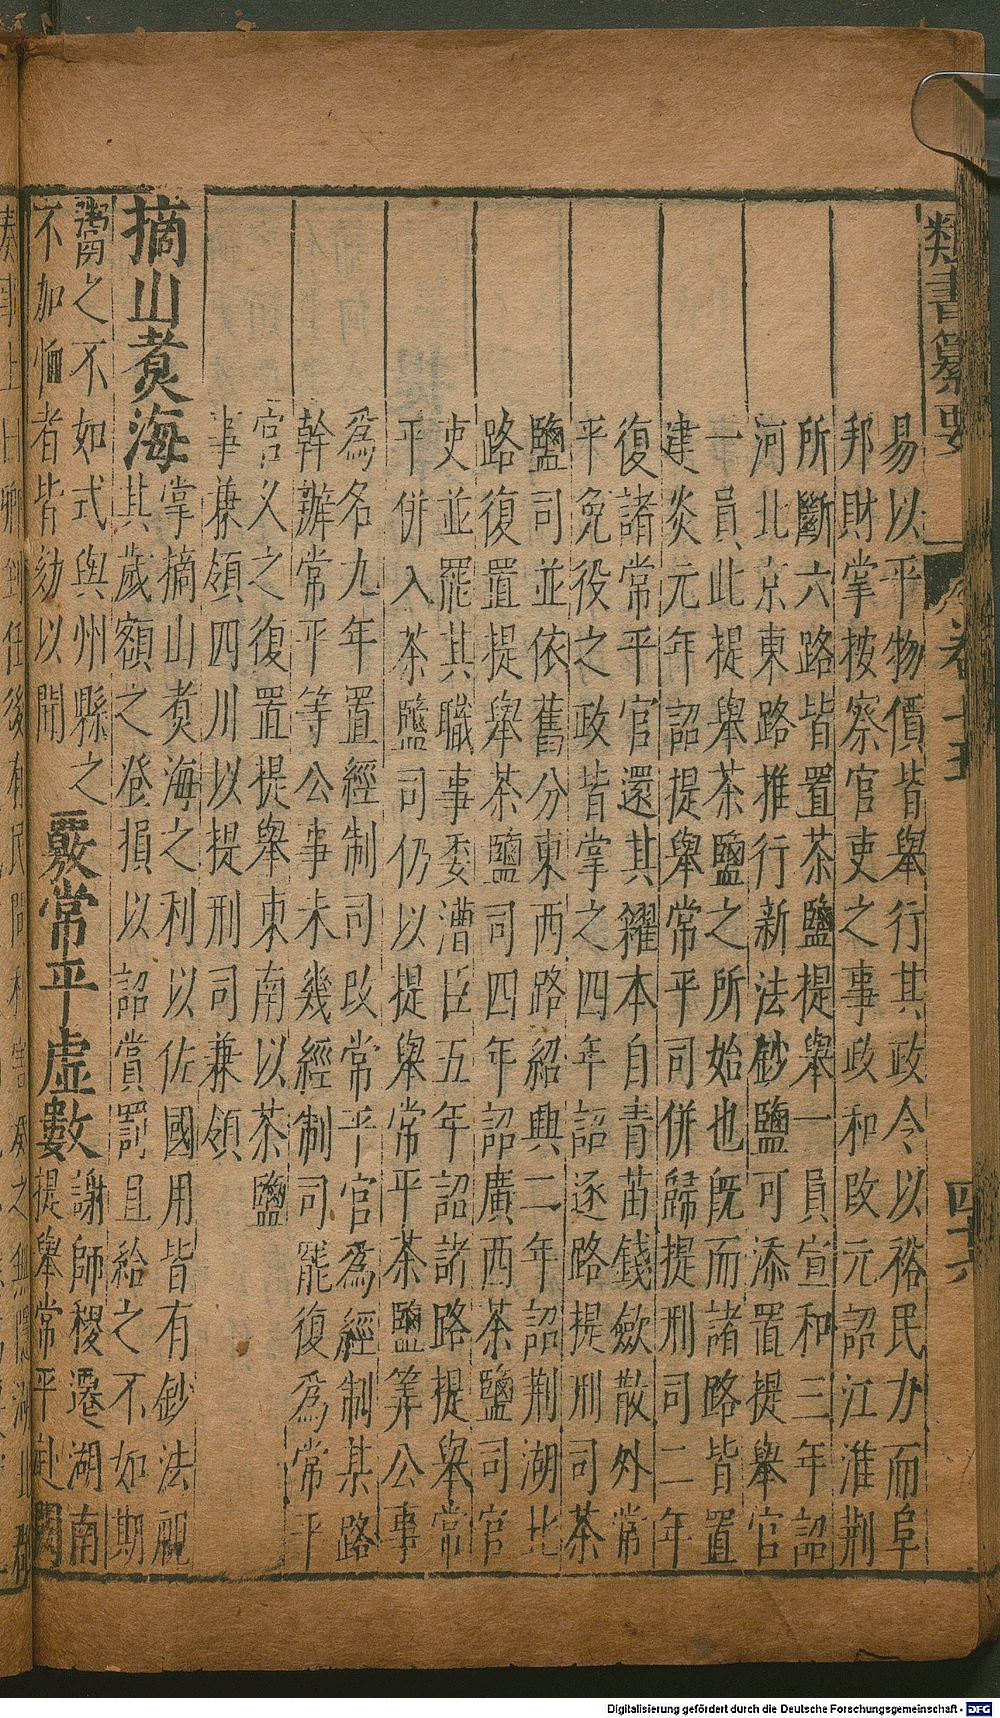 類書纂要
卷十五
四十六
易以平物價皆舉行其政令以裕民力而阜
邦財掌按察官吏之事政和改元詔江淮荆
所斷六路皆置茶鹽提舉一員宣和三年詔
河北京東路推行新法鈔鹽可添置提舉官
一員此提舉茶鹽之所始也既而諸路皆置
建炎元年詔提舉常平司併歸提刑司二年
復諸常平官還其糴本自青苗錢斂散外常
平免役之政皆掌之四年詔逐路提刑司茶
鹽司並依舊分東西路紹興二年詔荆湖北
路復置提舉茶鹽司四年詔廣西茶鹽司官
吏並罷其職事委漕臣五年詔諸路提舉常
平併入茶鹽司仍以提舉常平茶鹽等公事
為名九年置經制司改常平官為經制某路
幹辦常平等公事未幾經制司罷復為常平
官乂之復置提舉東南以茶鹽
事兼領四川以提刑司兼領
摘山煑海
掌摘山煑海之利以佐國用皆有鈔法視
其歲額之登損以詔賞罰且給之不如期
鬻之不如式與州縣之
不加恤者皆劾以聞
覈常平虛數
謝師稷遷湖南
提舉常平赴闕
Digitalisierung gefördert durch die Deutsche Forschungsgemeinschaft - DFG